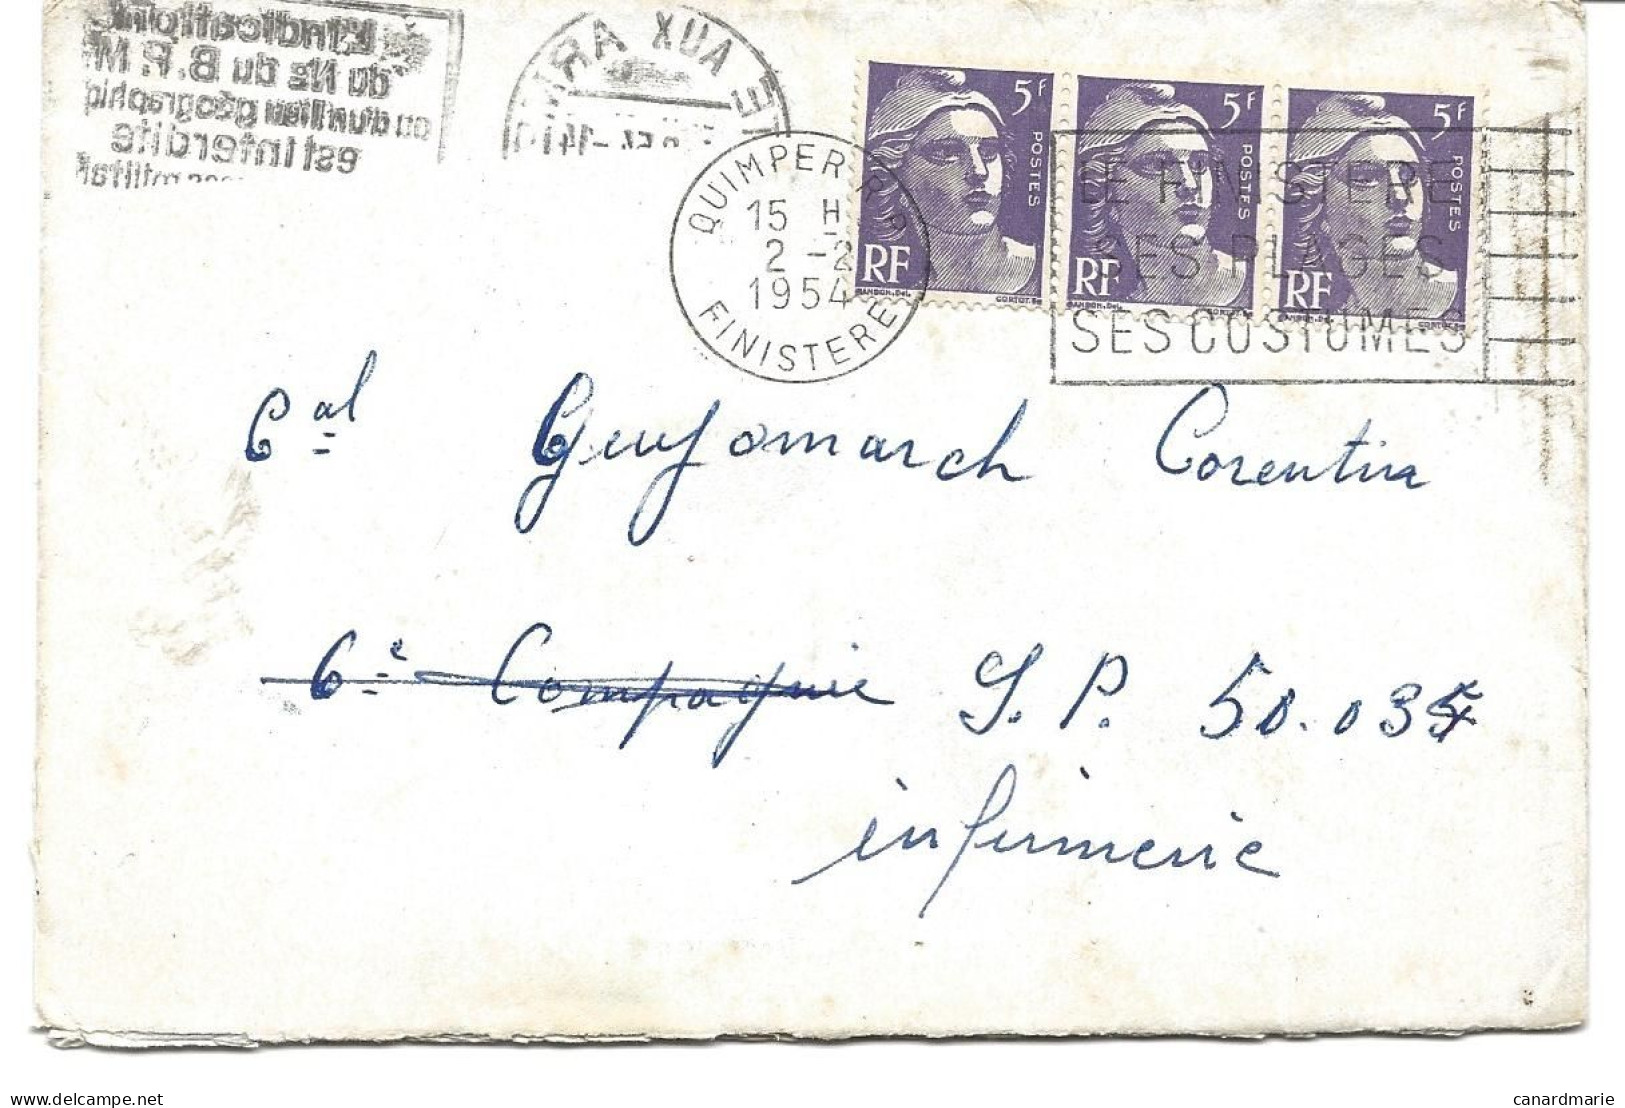 L'indication
du No du B.P.M
ou d'un lieu géographiq
est interdite
TE AUX ARM
QUIMPER R P
15 H
2 -2
1954
FINISTERE
5F POSTES RF
5F POSTES RF
5F POSTES RF
GANDON.Del. CORTOT.Sc
LE FINISTERE
SES PLAGES
SES COSTUMES
Cal Guyomarch Corentin
6e Compagnie S.P. 50.034
infirmerie
canardmarie